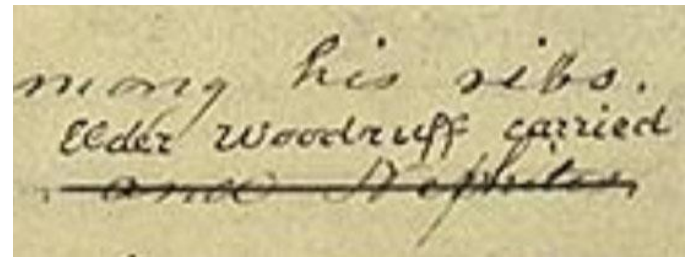 mong his ribs.
Elder Woodruff carried